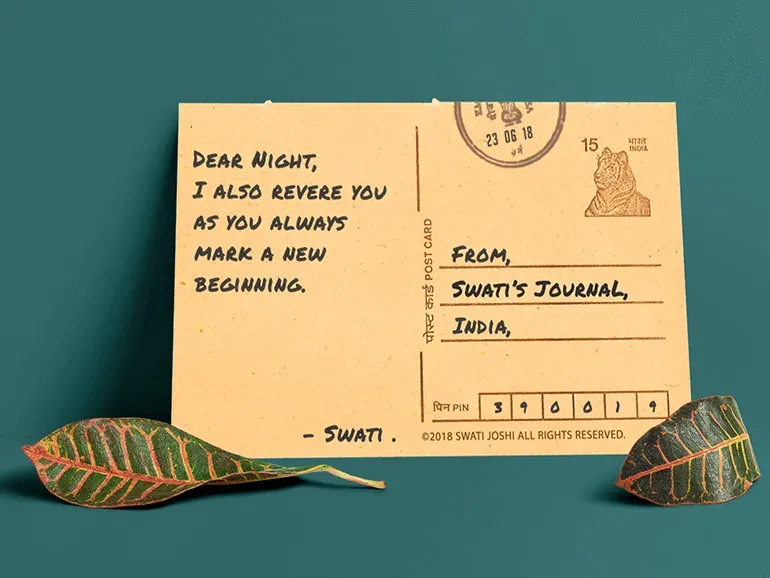 DEAR NIGHT,
I ALSO REVERE YOU
AS YOU ALWAYS
MARK A NEW
BEGINNING.
- SWATI .
23 06 18
15
भारत
INDIA
पोस्ट कार्ड POST CARD
FROM,
SWATI'S JOURNAL,
INDIA,
पिन PIN 390019
©2018 SWATI JOSHI ALL RIGHTS RESERVED.